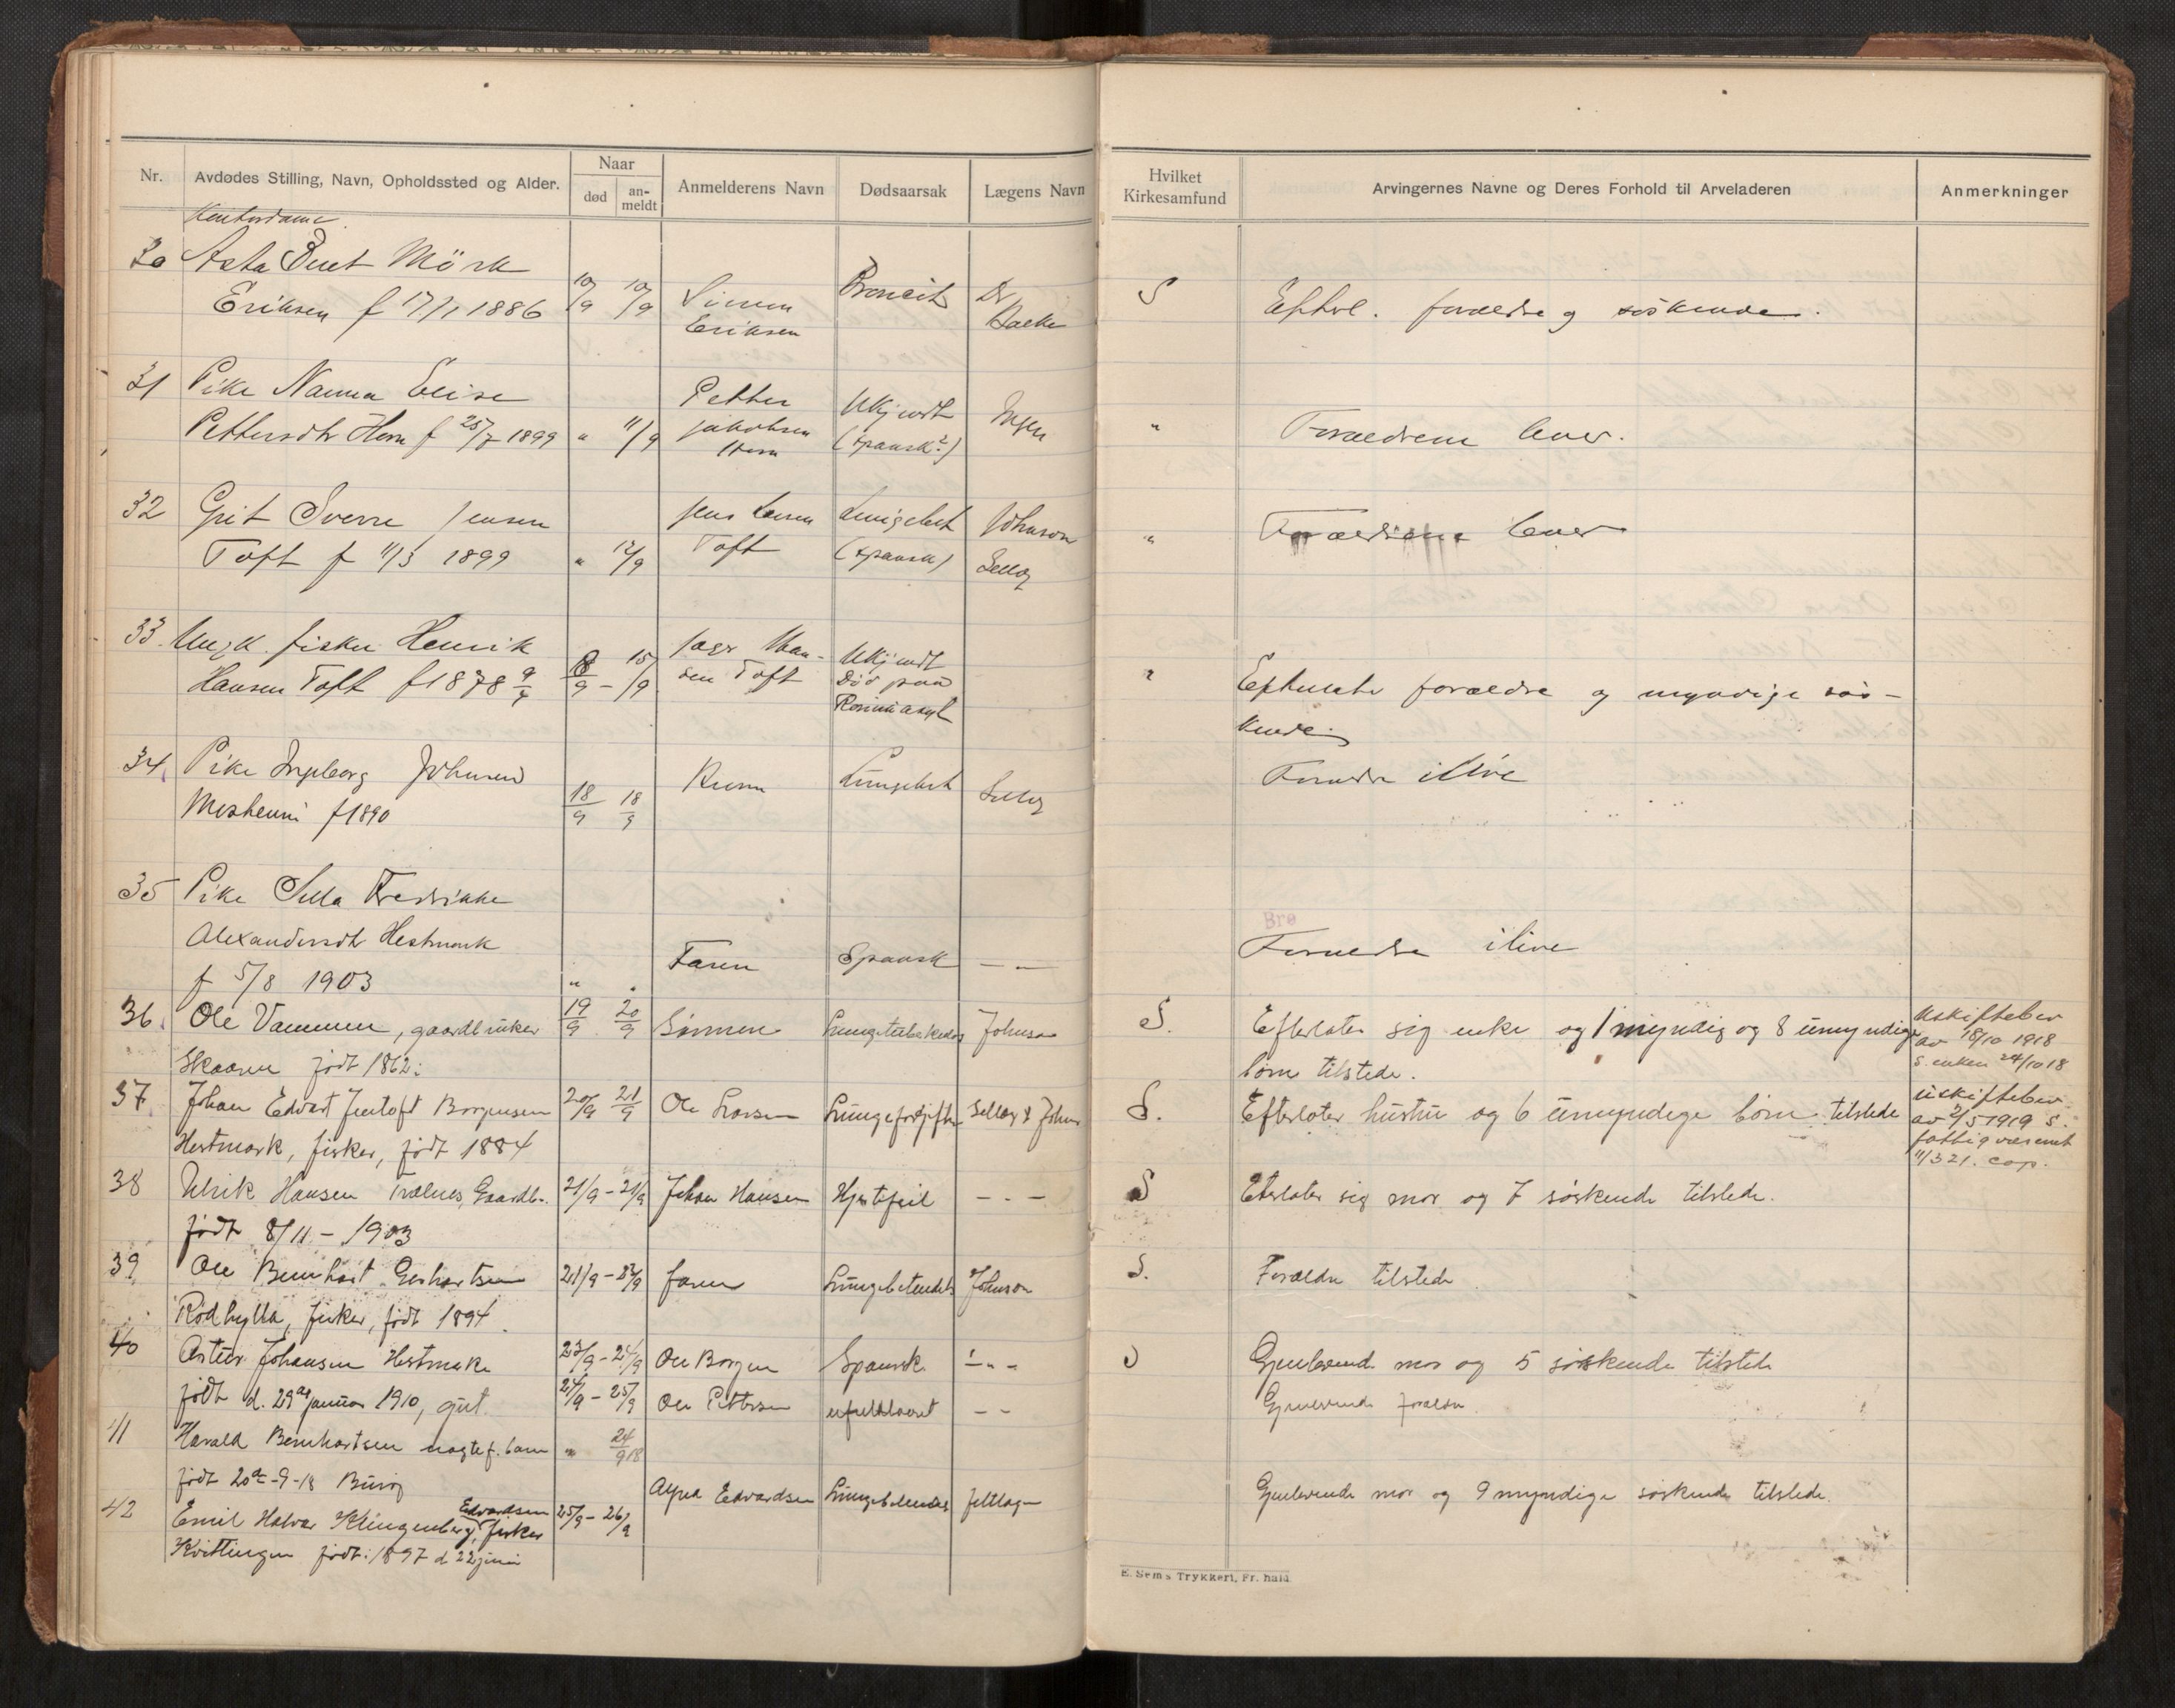 Nr.
Avdødes Stilling, Navn, Opholdssted og Alder.
Naar
død
an-
meldt
Anmelderens Navn
Dødsaarsak
Lægens Navn
Hvilket
Kirkesamfund
Arvingernes Navne og Deres Forhold til Arveladeren
Anmerkninger
Kontordame
30 Asta Mörk
Eriksen f 17/1 1886 10/9 10/9 Simon Eriksen Dr Backe
S
foraeldre og söskende.
31 Pike Nanna Elise
Pettersdtr Horn f 25/7 1899 " 11/9 Petter Jakobsen Horn Ukjendt (spansk?) Ingen
" Foraeldrene lever.
32 Grit Sverre Jensen
Toft f 11/3 1899 " 12/9 Jens Toft Lungebet (spansk) Johnson Selløg
" Foraeldrene lever
33. Ungk. fisker Henrik
Hansen Toft f 1878 9/4 8/9 - 15/9 Han-
sen Toft Ukjendt
Död paa
asyl
" Efterlater foraeldre og myndige sös-
kende.
34. Pike Ingeborg Johnsen
f 1890 18/9 18/9 Lungebet Selløg
ilive
35 Pike Fredrikke
Alexandersdtr Hestmark
f 5/8 1903 " Faren Spansk — " —
Brø
Foraeldre ilive
36. Ole Vammen, gaardbruker 19/9 20/9 Sönnen Lungetuberkulos Johnson
født 1862:
S. Efterlater sig enke og 1 myndig og 8 umyndige
børn tilstede.
Uskiftebev
av 18/10 1918
s. enken 24/10 18
37. Johan Edvart Jentoft Borgensen 20/9 21/9 Ole Larsen Selløg & Johns
Hestmark, fisker, født 1884
S. Efterlater hustru og 6 umyndige børn tilstede
uskiftebev.
av 2/5 1919 s.
fattigvæsenet
11/3 21. cop.
38 Ulrik Hansen Trælnes, Gaardb. 21/9 - 21/9 Johan Hansen Hjertefeil — " —
født 8/11 - 1903
S Eterlater sig mor og 7 søskende tilstede.
39 Ole Bernhart Gerhartsen 21/9 - 22/9 faren Lungebetendels Johnson
Rødhylla, fisker, født 1894.
S. Forældre tilstede
40 Artur Johansen Hestmake 23/9 - 24/9 Ole Borgen Spansk. — " —
født d. 29de Januar 1910, gut.
Gjenlevende mor og 5 søskende tilstede
24/9 - 25/9 Ole Pettersen — " —
Gjenlevende forældre
41 Harald Bernhartsen ungtef. barn " 24/9 18
født 20de-9-18
42 Emil Halvar Klingenberg Edvardsen, fisker 25/9 - 26/9 Edvardsen Lungebetendels
Kvittingen født: 1897 d 22 juni
Gjenlevende mor og 9 myndige søskende tilstede.
E. Sem's Trykkeri, Fr.hald